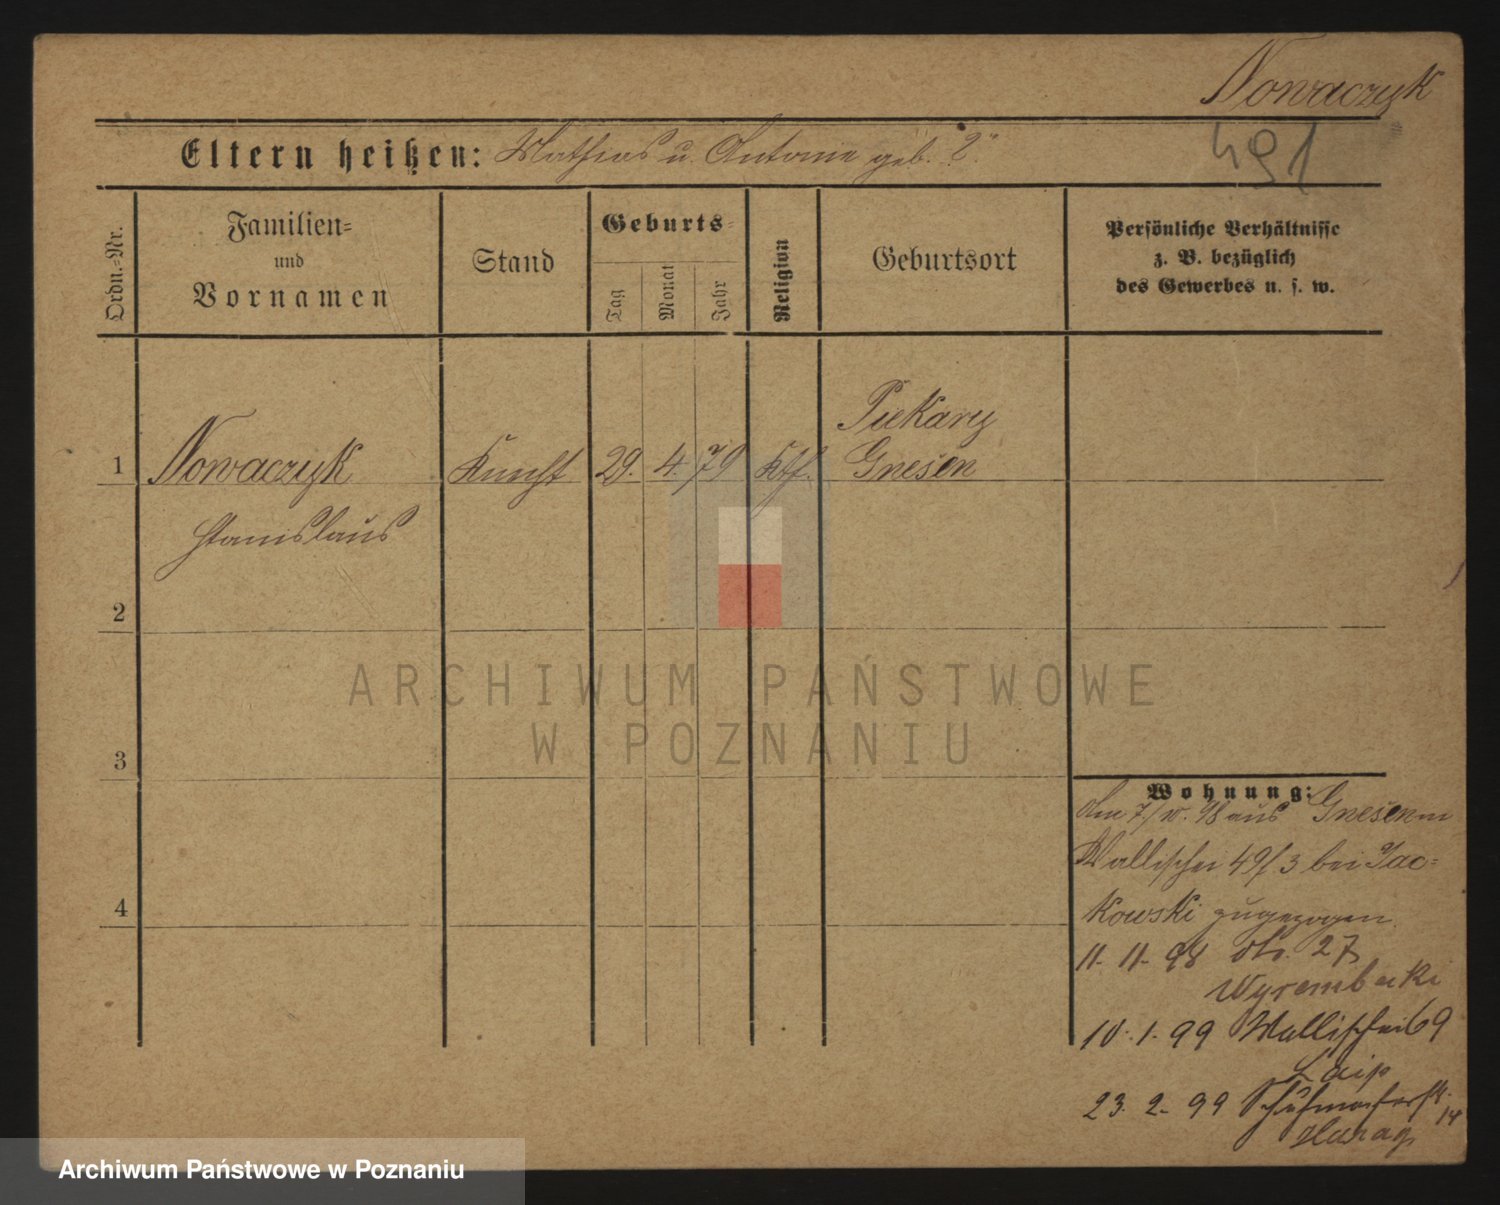 Nowaczyk
491
Eltern heißen: Mathias u. Antonie geb. "?"
Ordn.-Nr.
Familien-
und
Vornamen
Stand
Geburts-
Tag
Monat
Jahr
Religion
Geburtsort
Persönliche Verhältnisse
z. B. bezüglich
des Gewerbes u. s. w.
Piekary
1 Nowaczyk Knecht 29. 4. 79 Kth. Gnesen
Stanislaus
2
ARCHIWUM PAŃSTWOWE
W POZNANIU
3
Wohnung:
Am 7./10. 98 aus Gnesen
Wallischei 49/3 bei Jac-
kowski zugezogen.
11. 11. 98 do. 27
Wyrembecki
4
10. 1. 99 Wallischei 69
Laip
23. 2. 99 Schuhmacherstr. 14
Archiwum Państwowe w Poznaniu